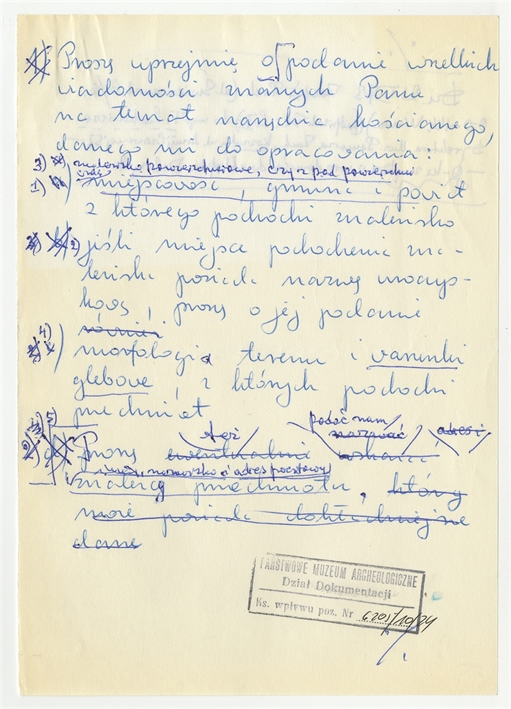 1) Proszę uprzejmię o podanie wszelkich
wiadomości znanych Panu
na temat narzędzia kościanego,
danego mi do opracowania:
3) znalezisko powierzchniowe, czy z pod powierzchni
oraz
1) miejscowość, gmina i powiat
z którego pochodzi znalezisko
2) jeśli miejsce pochodzenia zna-
leziska posiada nazwę zwyczaj-
ową, proszę o jej podanie
również
4) morfologia terenu i warunki
glebowe, z których pochodzi
przedmiot
5) też podać nam adres i
Proszę ewentualnie wskazać nazwać
imię, nazwisko i adres pocztowy
znalazcę przedmiotu, który
może posiada dokładniejsze
dane
PAŃSTWOWE MUZEUM ARCHEOLOGICZNE
Dział Dokumentacji
Ks. wpływu poz. Nr 6205/10/24